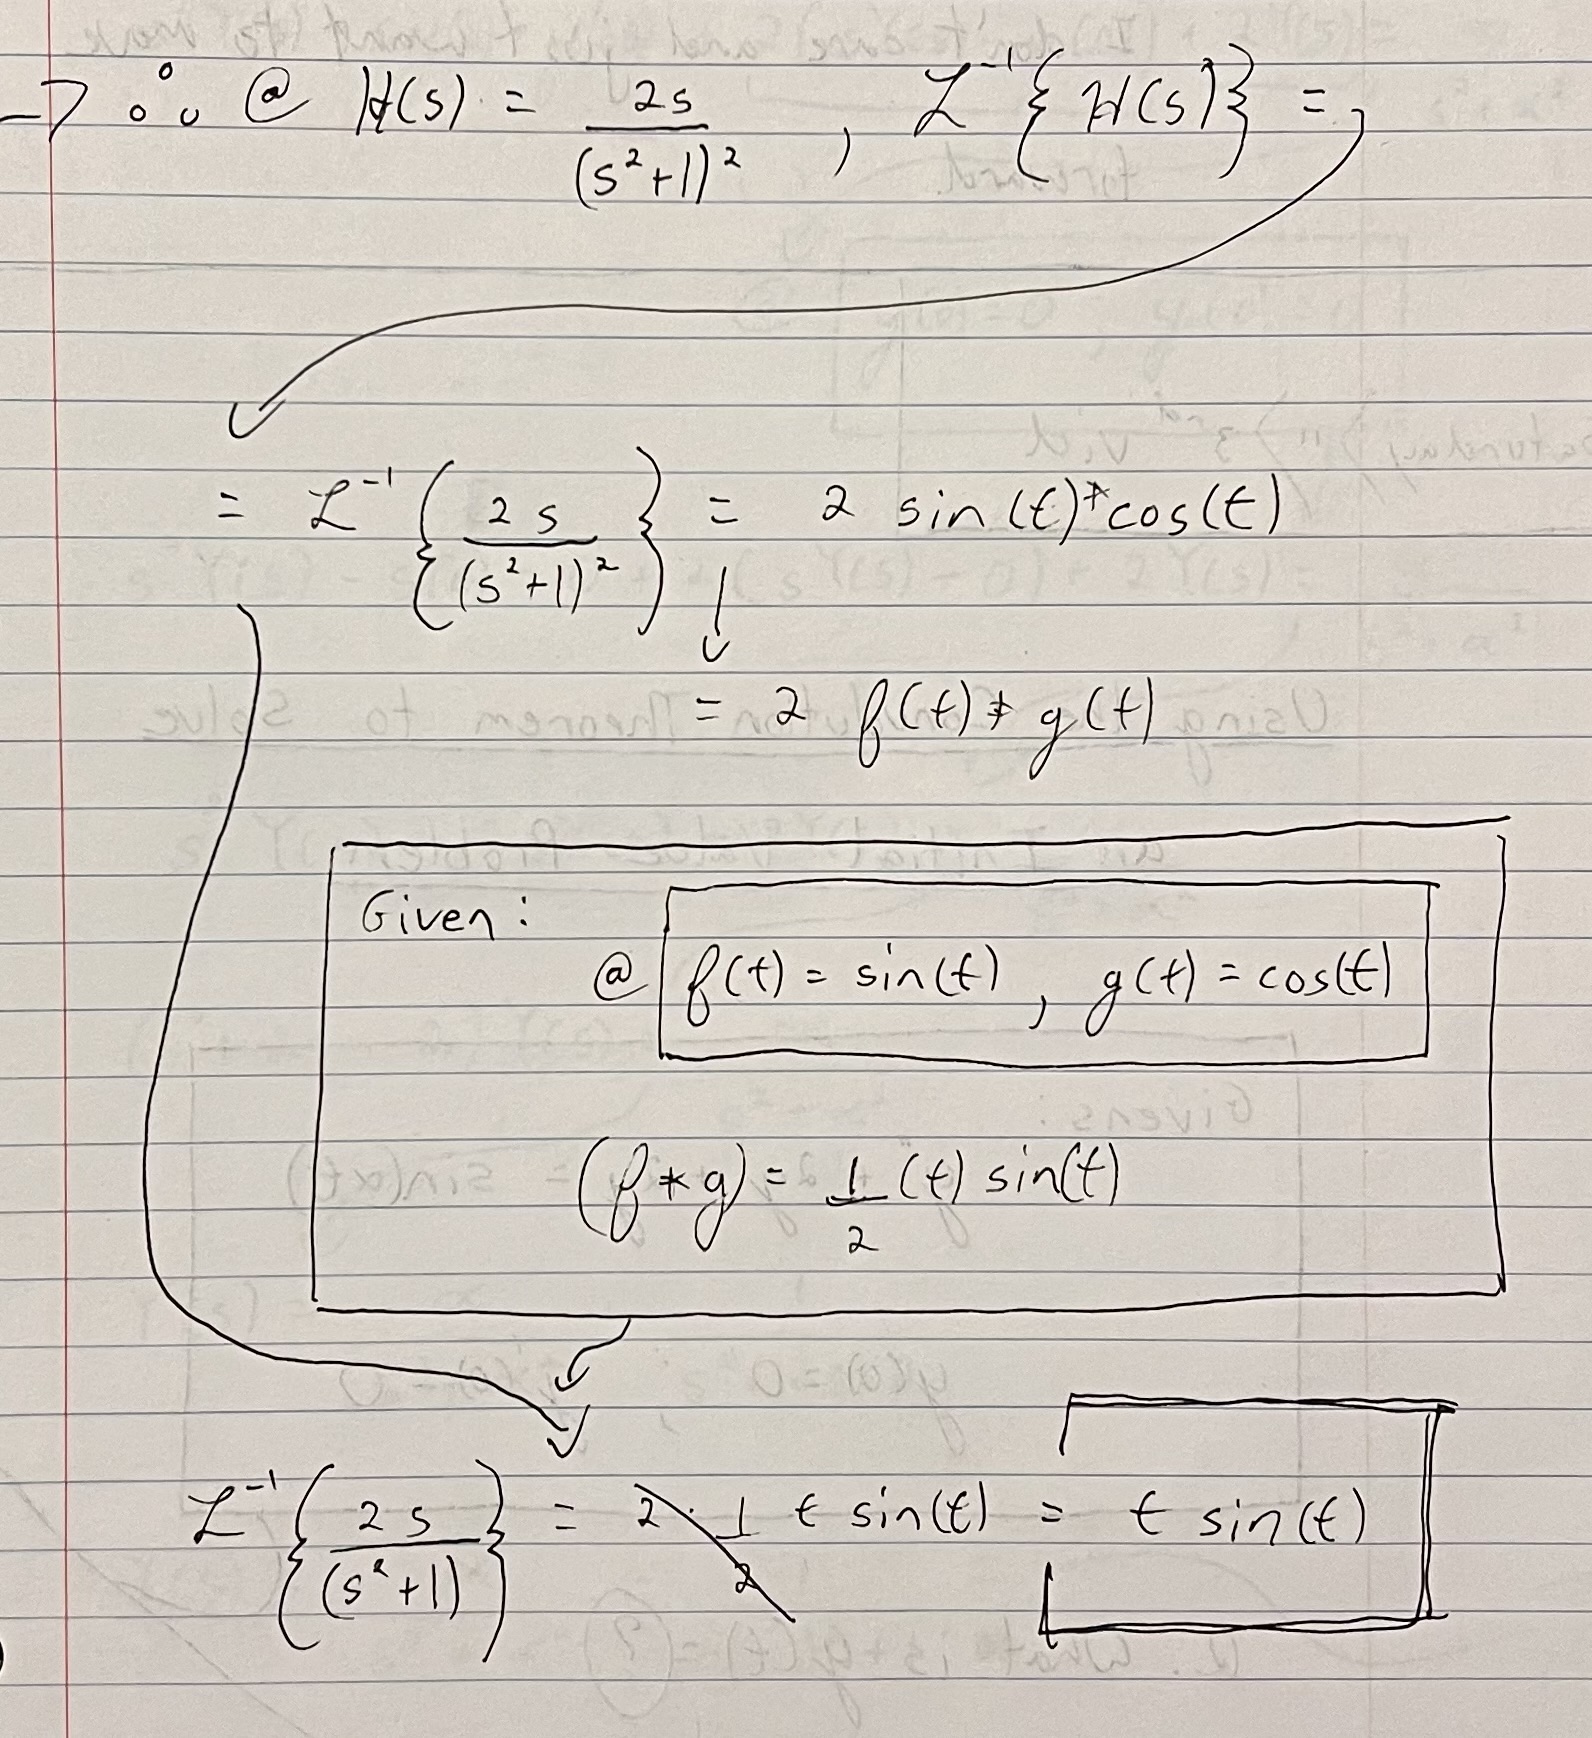 → ∴ @ H(s) = 2s / (s²+1)² , ℒ⁻¹{H(s)} =
= ℒ⁻¹{2s / (s²+1)²} = 2 sin(t)*cos(t)
= 2 f(t) * g(t)
Given:
@ f(t) = sin(t) , g(t) = cos(t)
(f * g) = 1/2 (t) sin(t)
ℒ⁻¹{2s / (s²+1)} = 2 · 1/2 t sin(t) = t sin(t)